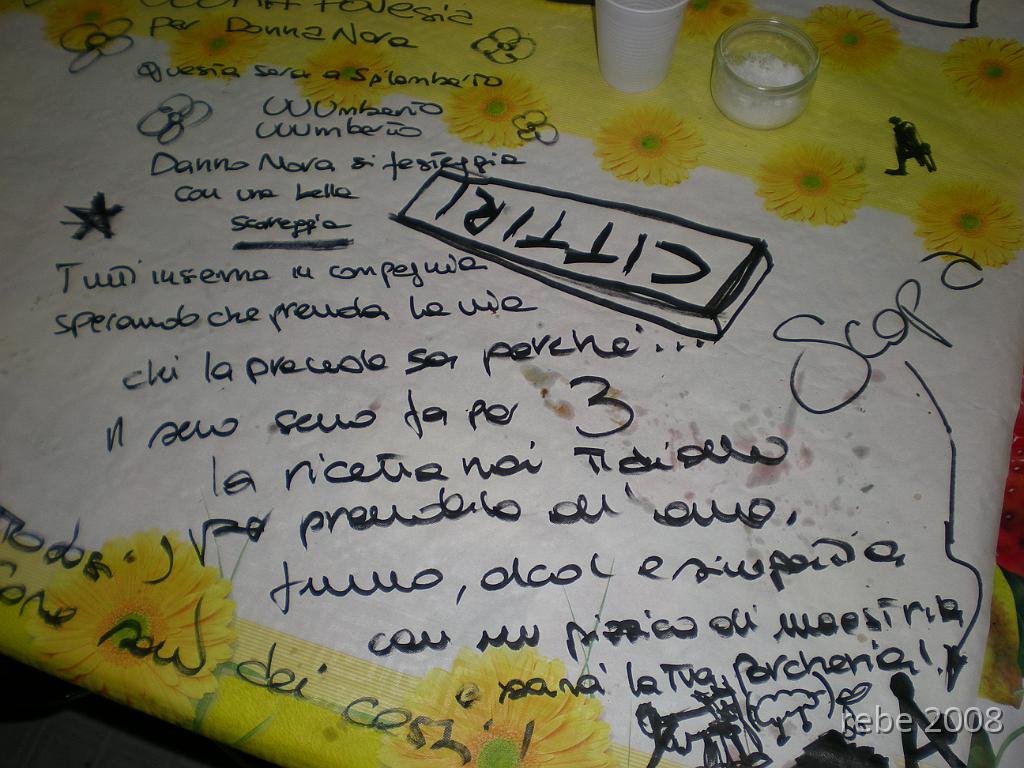 per Donna Nora
Questa sera a Spilamberto
UUUmberto
UUUmberto
Danno Nora si festeggia
con una bella
scoreggia
CITTIRI
Tutti insieme in compagnia
sperando che prenda la via
Scop
chi la precede sa perché...
Il seno seno fa per 3
la ricetta noi Ti diamo
prendilo di
fumo, alcol e simpatia
con un pizzico di maestria
e sarà la Tua porcheria!
sono dei così!
rebe 2008